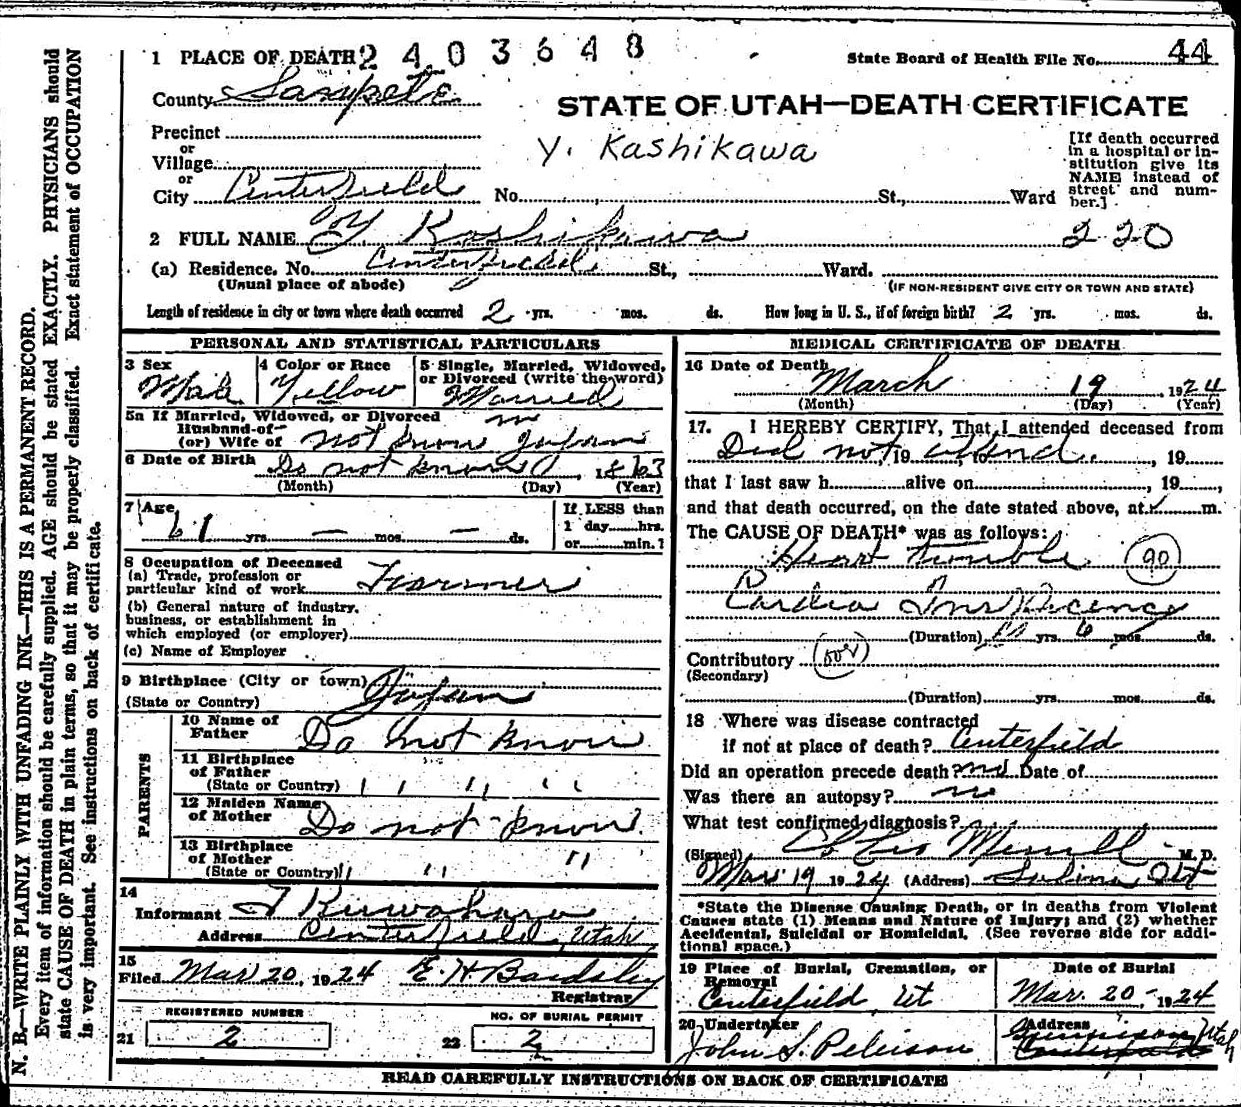 1 PLACE OF DEATH 2 4 0 3 6 4 8
State Board of Health File No. 44
County Sanpete
STATE OF UTAH—DEATH CERTIFICATE
Precinct
or
Village
or
City Centerfield No. St., Ward
Y. Kashikawa
[If death occurred
in a hospital or in-
stitution give its
NAME instead of
street and num-
ber.]
2 FULL NAME Y Koshikawa 220
(a) Residence. No. Centerfield St., Ward.
(Usual place of abode) (IF NON-RESIDENT GIVE CITY OR TOWN AND STATE)
Length of residence in city or town where death occurred 2 yrs. mos. ds. How long in U. S., if of foreign birth? 2 yrs. mos. ds.
PERSONAL AND STATISTICAL PARTICULARS
3 Sex Male
4 Color or Race Yellow
5 Single, Married, Widowed,
or Divorced (write the word)
Married
5a If Married, Widowed, or Divorced
Husband of
(or) Wife of not know Japan
6 Date of Birth Do not know 1863
(Month) (Day) (Year)
7 Age 61 yrs. — mos. — ds.
If LESS than
1 day hrs.
or min.?
8 Occupation of Deceased
(a) Trade, profession or
particular kind of work Farmer
(b) General nature of industry,
business, or establishment in
which employed (or employer)
(c) Name of Employer
9 Birthplace (City or town)
(State or Country) Japan
PARENTS
10 Name of
Father Do not know
11 Birthplace
of Father
(State or Country) " " "
12 Maiden Name
of Mother Do not know
13 Birthplace
of Mother
(State or Country) " " "
14
Informant T Kuwahara
Address Centerfield, Utah
15
Filed Mar 20, 1924 E. H. Bardsley
Registrar
REGISTERED NUMBER
21 2
NO. OF BURIAL PERMIT
22 2
MEDICAL CERTIFICATE OF DEATH
16 Date of Death March 19 1924
(Month) (Day) (Year)
17. I HEREBY CERTIFY, That I attended deceased from
Did not, 19 attend, 19
that I last saw h alive on , 19 ,
and that death occurred, on the date stated above, at m.
The CAUSE OF DEATH* was as follows:
Heart Trouble 90
Cardia Insufficency
(Duration) yrs. 6 mos. ds.
Contributory
(Secondary)
(Duration) yrs. mos. ds.
18 Where was disease contracted
if not at place of death? Centerfield
Did an operation precede death? no Date of
Was there an autopsy? no
What test confirmed diagnosis?
(Signed) Merrill M. D.
Mar 19 1924 (Address) Salina Ut
*State the Disease Causing Death, or in deaths from Violent
Causes state (1) Means and Nature of Injury; and (2) whether
Accidental, Suicidal or Homicidal. (See reverse side for addi-
tional space.)
19 Place of Burial, Cremation, or
Removal
Centerfield Ut
Date of Burial
Mar. 20 - 1924
20 Undertaker
John S. Peterson
Address
Gunnison Utah
READ CAREFULLY INSTRUCTIONS ON BACK OF CERTIFICATE
N. B.—WRITE PLAINLY WITH UNFADING INK—THIS IS A PERMANENT RECORD.
Every item of information should be carefully supplied. AGE should be stated EXACTLY. PHYSICIANS should
state CAUSE OF DEATH in plain terms, so that it may be properly classified. Exact statement of OCCUPATION
is very important. See instructions on back of certificate.